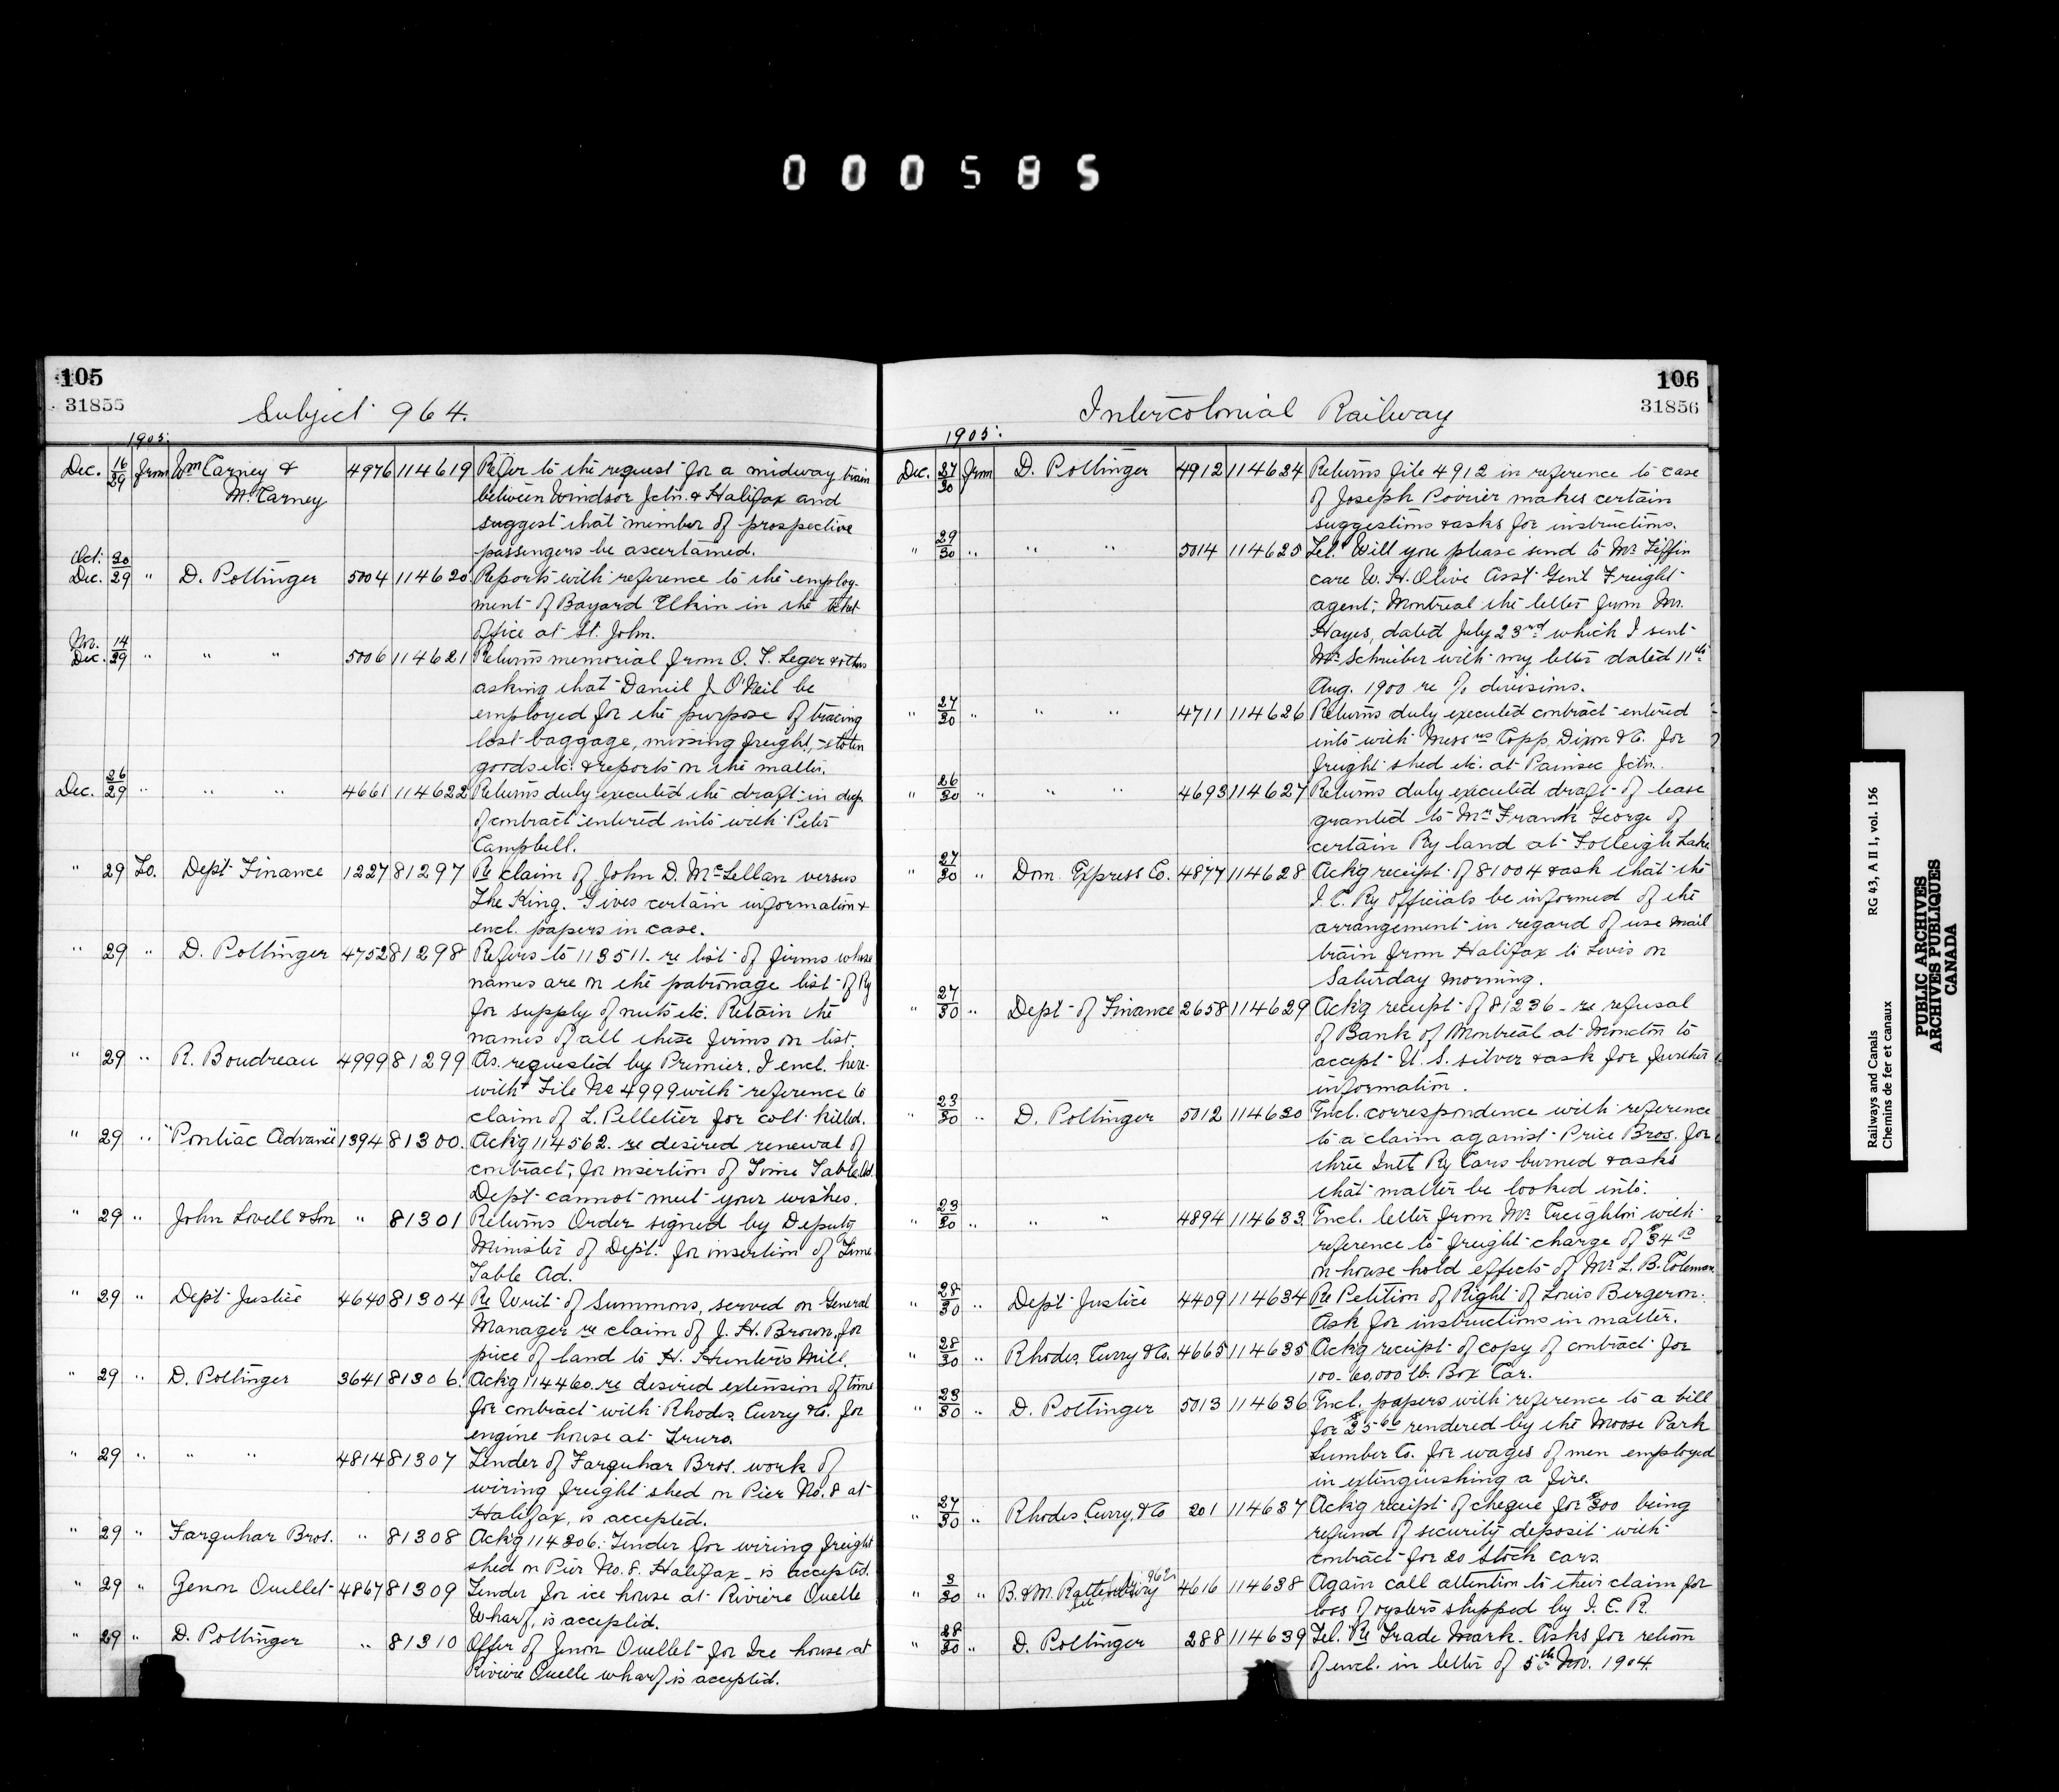 000585
105
31855
Subject 964.
1905.
Dec. 16/29 from Wm Carney & 4976 114619 Refer to the request for a midway train
McCarney between Windsor Jctn. & Halifax and
suggest that member of prospective
passengers be ascertained.
Oct. 30
Dec. 29 " D. Pottinger 5004 114620. Reports with reference to the employ-
ment of Bayard Elkin in the ticket
office at St. John.
Nov. 14
Dec. 29 " " " 5006 114621 Returns memorial from O. T. Leger & others
asking that Daniel J. O'Neil be
employed for the purpose of tracing
lost baggage, missing freight, stolen
goods etc. & reports on the matter.
Dec. 26/29 " " " 4661 114622 Returns duly executed the draft in dup.
of contract entered into with Peter
Campbell.
" 29 To. Dept Finance 1227 81297 Re claim of John D. McLellan versus
The King. Gives certain information &
encl. papers in case.
" 29 " D. Pottinger 4752 81298 Refers to 113511. re list of firms whose
names are on the patronage list of Ry
for supply of nuts etc. Retain the
names of all these firms on list.
" 29 " R. Boudreau 4999 81299 As requested by Premier. I encl. here-
with File No 4999 with reference to
claim of L. Pelletier for colt killed.
" 29 " "Pontiac Advance" 1394 81300. Ack'g 114562. re desired renewal of
contract, for insertion of Time Table Ad.
Dept cannot meet your wishes.
" 29 " John Lovell & Son " 81301 Returns Order signed by Deputy
Minister of Dept. for insertion of Time
Table Ad.
" 29 " Dept Justice 4640 81304 Re Writ of Summons, served on General
Manager re claim of J. H. Brown, for
price of land to H. Hunter's Mill.
" 29 " D. Pottinger 3641 81306. Ack'g 114460. re desired extension of time
for contract with Rhodes, Curry & Co. for
engine house at Truro.
" 29 " " " 4814 81307 Tender of Farquhar Bros. work of
wiring freight shed on Pier No. 8 at
Halifax, is accepted.
" 29 " Farquhar Bros. " 81308 Ack'g 114306. Tender for wiring freight
shed on Pier No. 8. Halifax is accepted.
" 29 " Zenon Ouellet 4867 81309 Tender for ice house at Riviere Ouelle
Wharf, is accepted.
" 29 " D. Pottinger " 81310 Offer of Zenon Ouellet for Ice house at
Riviere Ouelle wharf is accepted.
106
31856
Intercolonial Railway
1905.
Dec. 27/30 from D. Pottinger 4912 114624 Returns file 4912 in reference to case
of Joseph Poirier makes certain
suggestions & asks for instructions.
" 29/30 " " " 5014 114625 Tel. Will you please send to Mr Tiffin
care W. H. Olive Asst Genl Freight
agent, Montreal the letter from Mr.
Hayes, dated July 23rd which I sent
Mr Schreiber with my letter dated 11th
Aug. 1900 re % divisions.
" 27/30 " " " 4711 114626 Returns duly executed contract entered
into with Messrs Copp, Dixon & Co. for
freight shed etc. at Painsec Jctn.
" 26/30 " " " 4693 114627 Returns duly executed draft of lease
granted to Mr Frank George of
certain Ry land at Folleigh Lake
" 27/30 " Dom. Express Co. 4877 114628 Ack'g receipt of 81004 & ask that the
I. C. Ry officials be informed of the
arrangement in regard of use mail
train from Halifax to Levis on
Saturday morning.
" 27/30 " Dept of Finance 2658 114629 Ack'g receipt of 81236 - re refusal
of Bank of Montreal at Moncton to
accept U. S. silver & ask for further
information.
" 23/30 " D. Pottinger 5012 114630 Encl. correspondence with reference
to a claim against Price Bros. for
three Intl Ry Cars burned & asks
that matter be looked into.
" 23/30 " " " 4894 114633. Encl. letter from Mr Creighton with
reference to freight charge of $34
on house hold effects of Mr L. B. Coleman.
" 28/30 " Dept Justice 4409 114634 Re Petition of Right of Louis Bergeron.
Ask for instructions in matter.
" 28/30 " Rhodes, Curry & Co. 4665 114635 Ack'g receipt of copy of contract for
100-60,000 lb. Box Car.
" 23/30 " D. Pottinger 5013 114636 Encl. papers with reference to a bill
for $25 rendered by the Moose Park
Lumber Co. for wages of men employed
in extinguishing a fire.
" 27/30 " Rhodes, Curry, & Co 201 114637 Ack'g receipt of cheque for $300 being
refund of security deposit with
contract for 20 Stock cars.
962
" 3/30 " B. & M. Rattenbury 4616 114638 Again call attention to their claim for
loss of oysters shipped by I. C. R.
" 28/30 " D. Pottinger 288 114639 Tel. Re Trade Mark. Asks for return
of encl. in letter of 5th Nov. 1904.
Railways and Canals RG 43, A II 1, vol. 156
Chemins de fer et canaux
PUBLIC ARCHIVES
ARCHIVES PUBLIQUES
CANADA